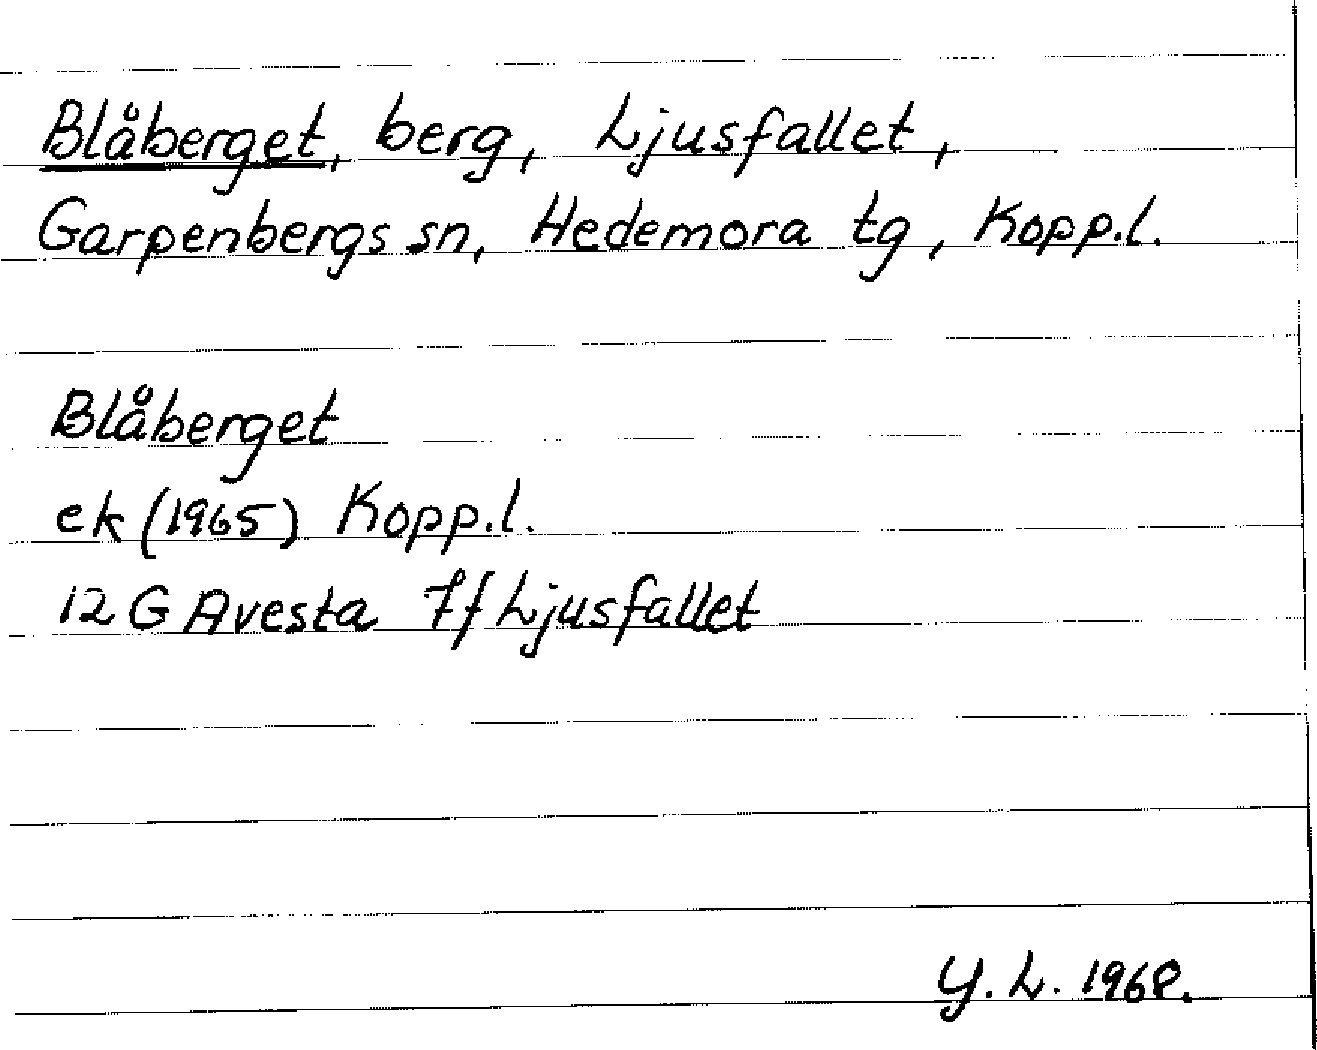 Blåberget, berg, Ljusfallet,
Garpenbergs sn, Hedemora tg, Kopp.l.
Blåberget
ek (1965) Kopp.l.
12 G Avesta 7f Ljusfallet
Y. L. 1968.